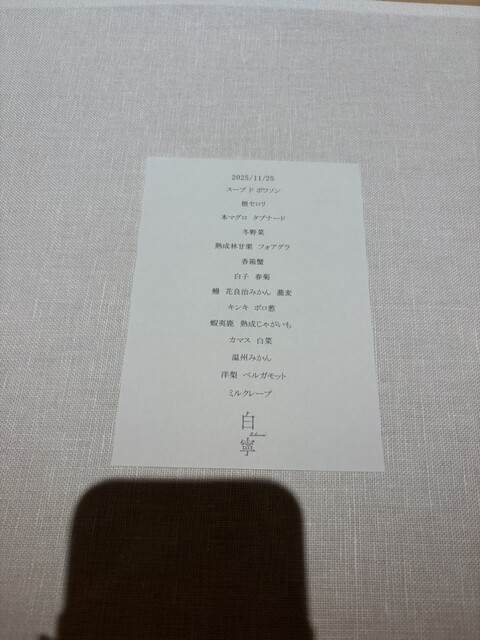 2025/11/25
スープ ド ポワソン
根セロリ
本マグロ タプナード
冬野菜
熟成林甘栗 フォアグラ
香箱蟹
白子 春菊
鰻 花良治みかん 蕎麦
キンキ ポロ葱
蝦夷鹿 熟成じゃがいも
カマス 白菜
温州みかん
洋梨 ベルガモット
ミルクレープ
白寧